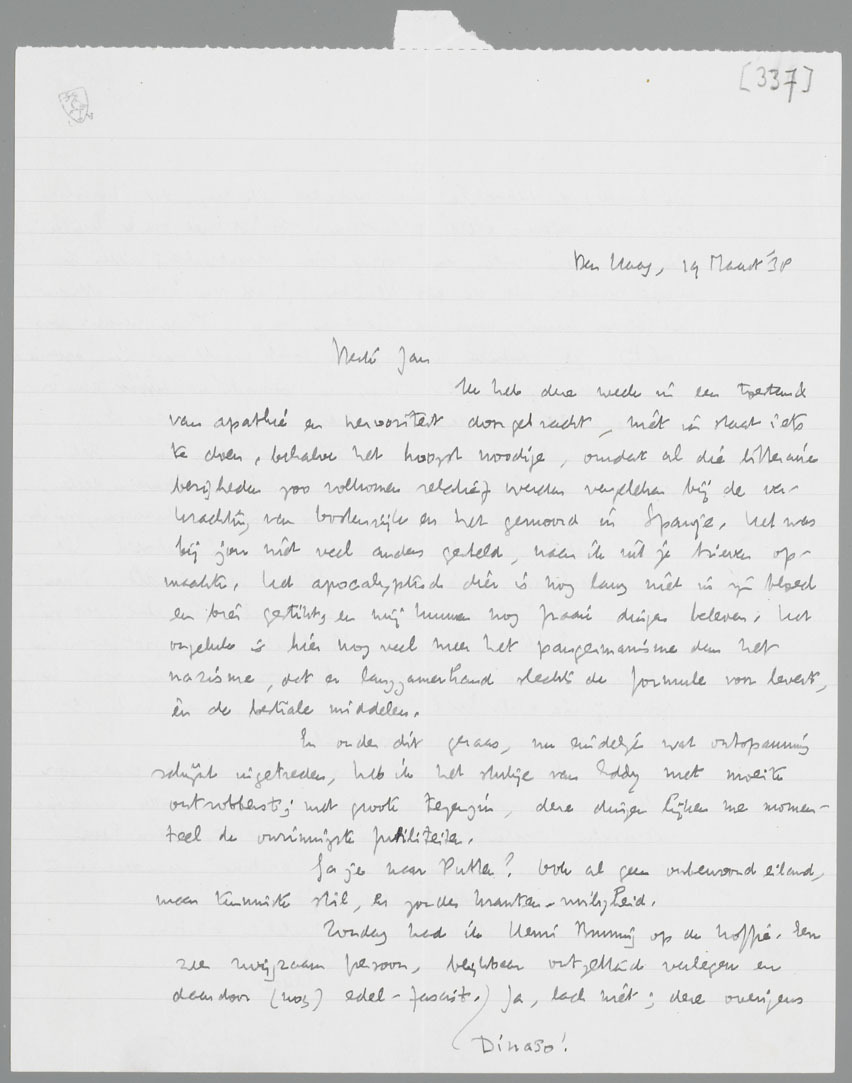 [337]
Den Haag, 19 Maart '38
Beste Jan
Ik heb deze week in een toestand
van apathie en nervositeit doorgebracht, niet in staat iets
te doen, behalve het hoogst noodige, omdat al die litteraire
bezigheden zoo volkomen relatief werden vergeleken bij de ver-
krachting van Oostenrijk en het gemoord in Spanje. Het was
bij jou niet veel anders gesteld, naar ik uit je brieven op-
maakte. Het apocalyptisch dier is nog lang niet in zijn bloed
en brei gestikt, en wij kunnen nog fraaie dingen beleven. Het
ongeluk is hier nog veel meer het pangermanisme dan het
nazisme, dat er langzamerhand slechts de formule voor levert,
èn de bestiale middelen.
En onder dit geraas, nu eindelijk wat ontspanning
schijnt ingetreden, heb ik het stukje van Eddy met moeite
ontrobberst; met groote tegenzin, deze dingen lijken me momen-
teel de onzinnigste futiliteiten.
Ga je naar Putten? Ook al geen onbewoond eiland,
maar tenminste stil, en zonder kranten-
Zondag had ik Henri Bruning op de koffie. Een
zeer zwijgzaam persoon, blijkbaar ontzettend verlegen en
daardoor (nog) edel-fascist. Ja, lach niet; deze overigens
Dinaso!